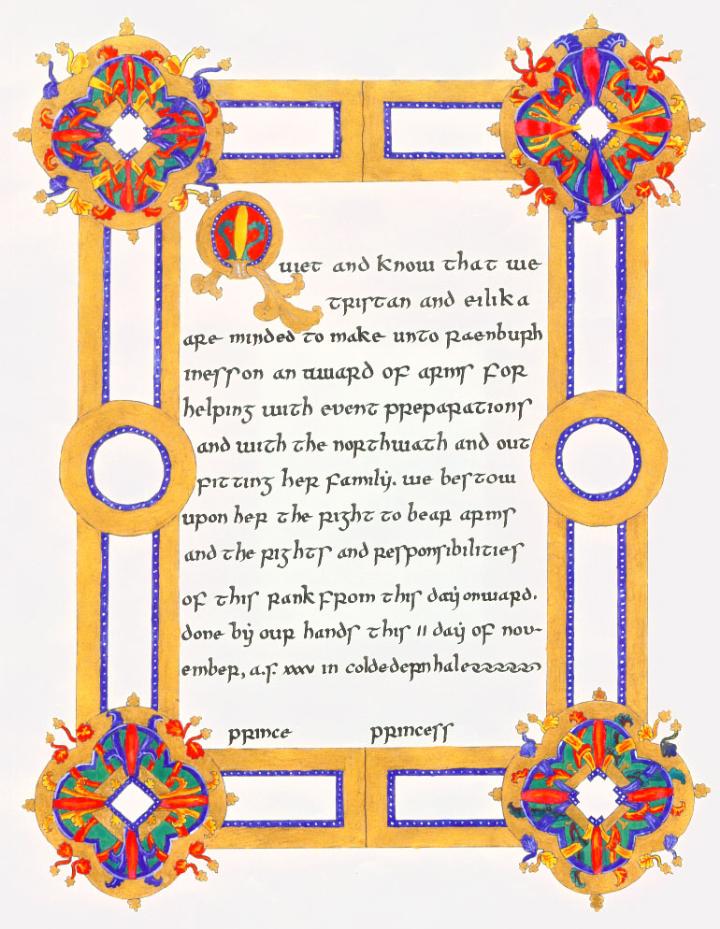 Quiet and know that we
tristan and eilika
are minded to make unto Raenburh
inesson an award of arms for
helping with event preparations
and with the northwath and out
fitting her family. we bestow
upon her the right to bear arms
and the rights and responsibilities
of this rank from this day onward.
done by our hands this 11 day of nov-
ember, a.s. xxxv in coldedernhale
prince princess